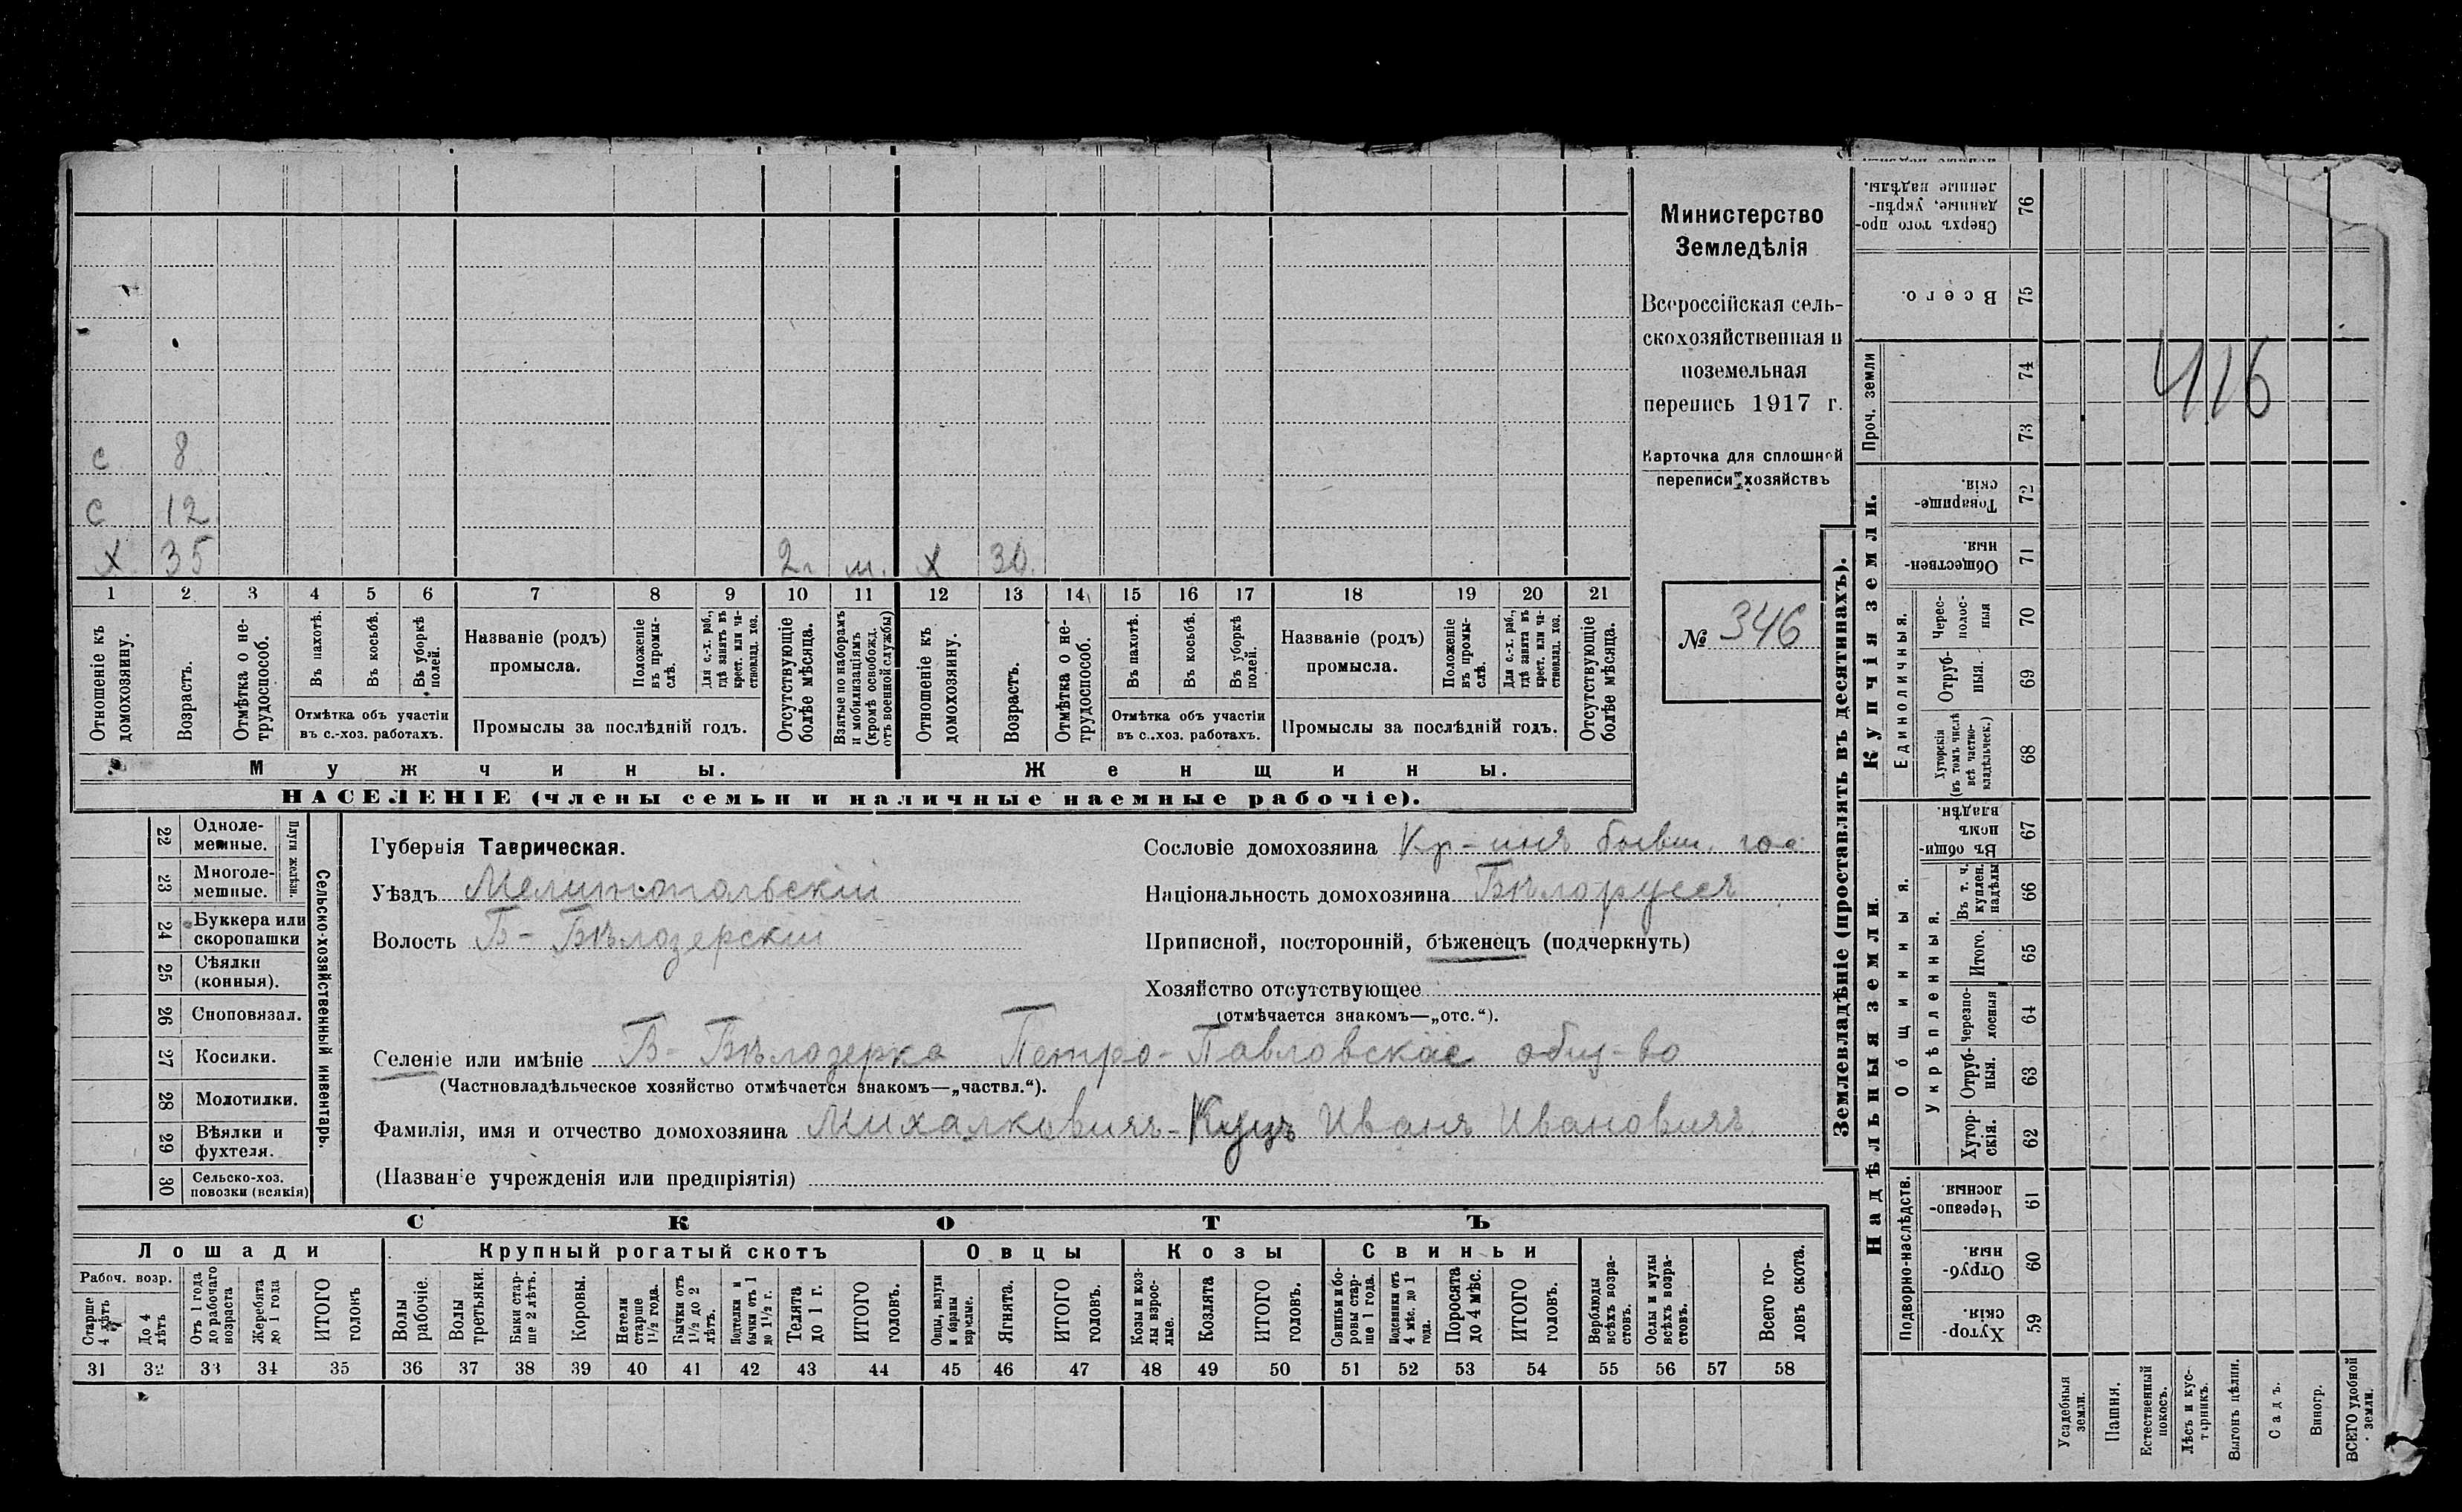 Министерство
Земледѣлія
Всероссійская сель-
скохозяйственная и
поземельная
перепись 1917 г.
Карточка для сплошной
переписи хозяйствъ
№ 346
416
с 8
с 12
х 35 2 г. м. х 30.
1 2 3 4 5 6 7 8 9 10 11 12 13 14 15 16 17 18 19 20 21
Отношеніе къ домохозяину.
Возрастъ.
Отмѣтка о не-трудоспособ.
Въ пахотѣ.
Въ косьбѣ.
Въ уборкѣ полей.
Отмѣтка объ участіи
въ с.-хоз. работахъ.
Названіе (родъ)
промысла.
Положеніе въ промы-слѣ.
Для с.-х. раб., гдѣ занятъ въ крест. или ча-стновлад. хоз.
Промыслы за послѣдній годъ.
Отсутствующіе болѣе мѣсяца.
Взятые по наборамъ и мобилизаціямъ (кромѣ освобожд. отъ военной службы)
Отношеніе къ домохозяину.
Возрастъ.
Отмѣтка о не-трудоспособ.
Въ пахотѣ.
Въ косьбѣ.
Въ уборкѣ полей.
Отмѣтка объ участіи
въ с.-хоз. работахъ.
Названіе (родъ)
промысла.
Положеніе въ промы-слѣ.
Для с.-х. раб., гдѣ занята въ крест. или ча-стновлад. хоз.
Промыслы за послѣдній годъ.
Отсутствующіе болѣе мѣсяца.
Мужчины. Женщины.
НАСЕЛЕНІЕ (члены семьи и наличные наемные рабочіе).
Сельско-хозяйственный инвентарь.
Плуги желѣзн.
22 Одноле-мешные.
23 Многоле-мешные.
24 Буккера или скоропашки
25 Сѣялки (конныя).
26 Сноповязал.
27 Косилки.
28 Молотилки.
29 Вѣялки и фухтеля.
30 Сельско-хоз. повозки (всякія)
Губернія Таврическая.
Уѣздъ Мелитопольскій
Волость Б-Бѣлозерскій
Сословіе домохозяина Кр-инъ бывш. гос
Національность домохозяина Бѣлоруссъ
Приписной, посторонній, бѣженецъ (подчеркнуть)
Хозяйство отсутствующее
(отмѣчается знакомъ—„отс.“).
Селеніе или имѣніе Б-Бѣлозерка Петро-Павловское общ-во
(Частновладѣльческое хозяйство отмѣчается знакомъ—„частвл.“).
Фамилія, имя и отчество домохозяина Михалковичъ-Куцъ Иванъ Ивановичъ
(Названіе учрежденія или предпріятія)
СКОТЪ
Лошади Крупный рогатый скотъ Овцы Козы Свиньи
Рабоч. возр.
Старше 4 лѣтъ
До 4 лѣтъ
Отъ 1 года до рабочаго возраста
Жеребята до 1 года
ИТОГО головъ
Волы рабочіе.
Волы третьяки.
Быки стар-ше 2 лѣтъ.
Коровы.
Нетели старше 1½ года.
Бычки отъ 1½ до 2 лѣтъ.
Подтелки и бычки отъ 1 до 1½ г.
Телята до 1 г.
ИТОГО головъ.
Овцы, валухи и бараны взрослые.
Ягнята.
ИТОГО головъ.
Козы и коз-лы взрос-лые.
Козлята
ИТОГО головъ.
Свиньи и бо-ровы стар-ше 1 года.
Подсвинки отъ 4 мѣс. до 1 года.
Поросята до 4 мѣс.
ИТОГО головъ.
Верблюды всѣхъ возра-стовъ.
Ослы и мулы всѣхъ возра-стовъ.
Всего го-ловъ скота.
31 32 33 34 35 36 37 38 39 40 41 42 43 44 45 46 47 48 49 50 51 52 53 54 55 56 57 58
Землевладѣніе (проставлять въ десятинахъ).
Надѣльныя земли.
Купчія земли.
Проч. земли
Подворно-наслѣдств.
Общинныя.
Укрѣпленныя.
Единоличныя.
59 Хутор-скія.
60 Отруб-ныя.
61 Черезпо-лосныя.
62 Хутор-скія.
63 Отруб-ныя.
64 Черезпо-лосныя
65 Итого.
66 Въ т. ч. куплен. надѣлы
67 Въ общи-номъ владѣн.
68 Хуторскія (въ томъ числѣ всѣ частно-владѣльческ.)
69 Отруб-ныя.
70 Черес-полос-ныя
71 Обществен-ныя.
72 Товарище-скія.
73
74
75 Всего.
76 Сверхъ того про-данные, укрѣп-ленные надѣлы.
Усадебныя земли.
Пашня.
Естественный покосъ.
Лѣсъ и кус-тарникъ.
Выгонъ цѣлин.
Садъ.
Виногр.
ВСЕГО удобной земли.